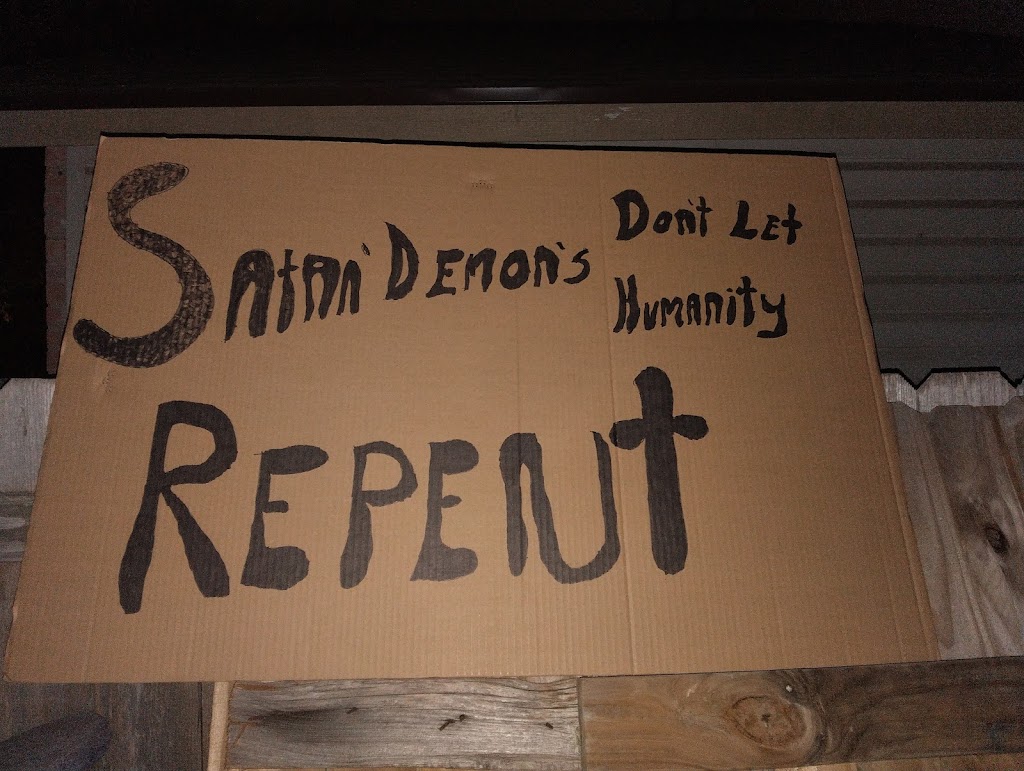 Satan' Demon's Don't Let
Humanity
REPENT